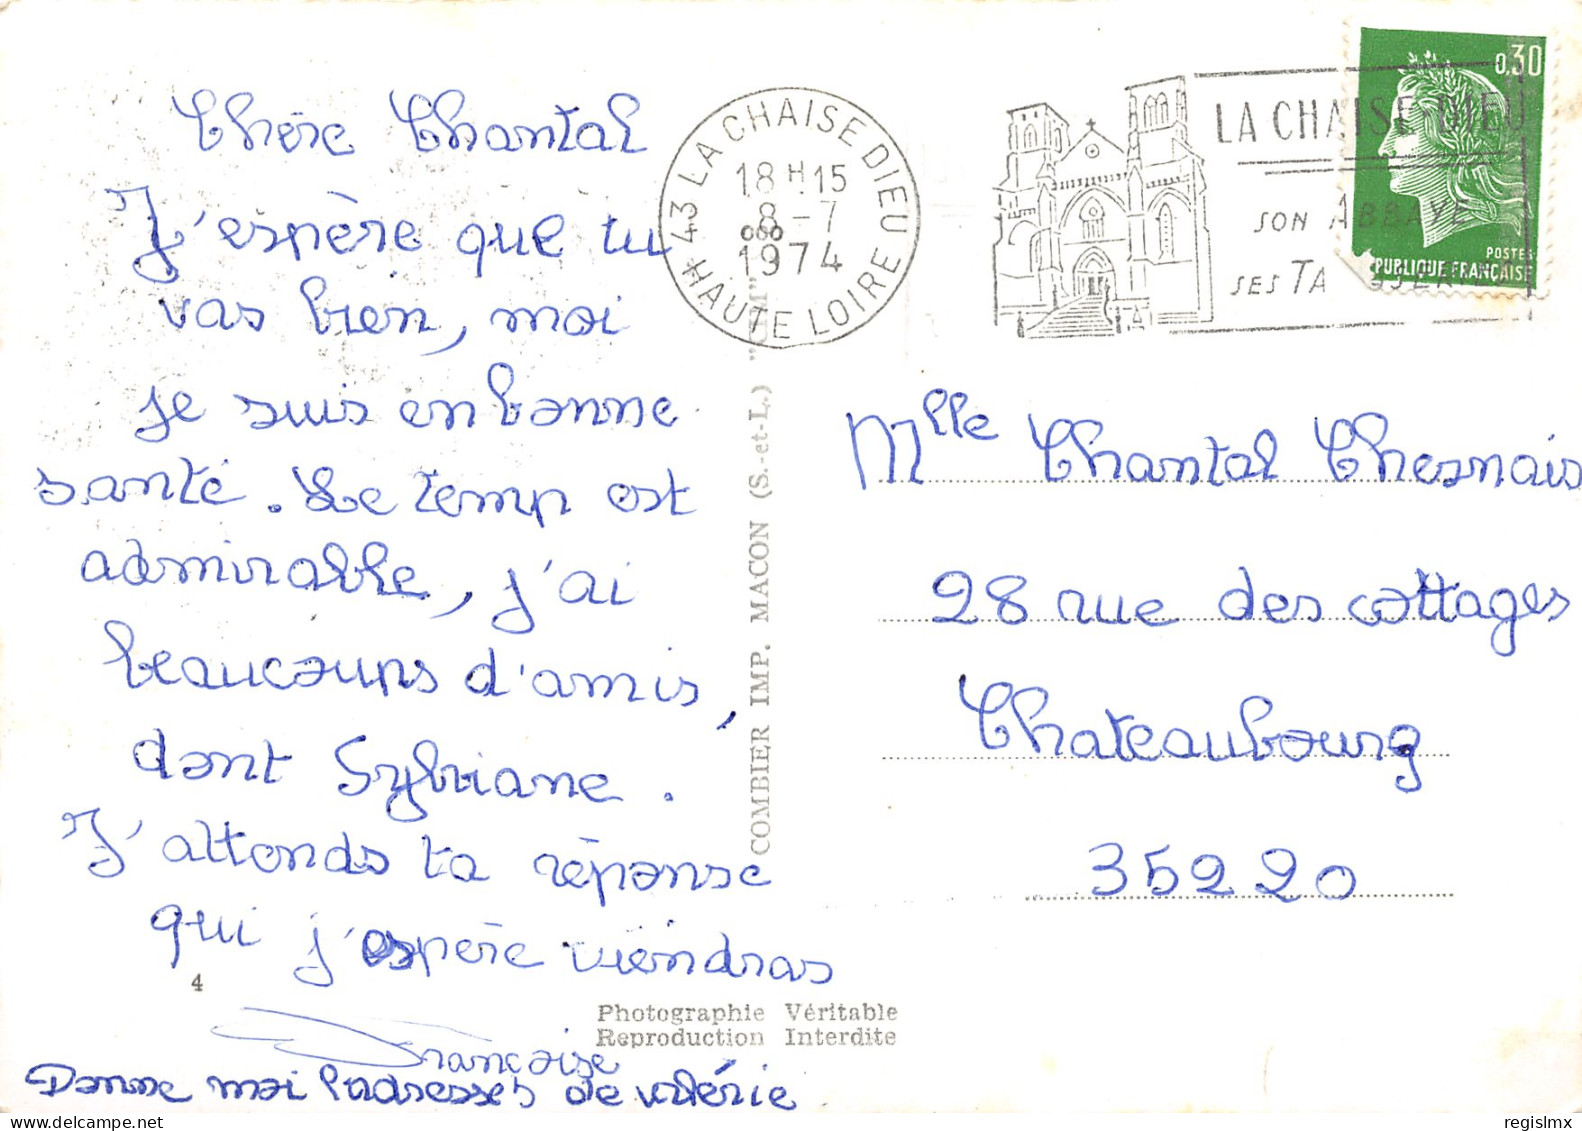 Chère Chantal
J'espère que tu
vas bien, moi
je suis en bonne
santé. Le temp est
admirable, j'ai
beaucoups d'amis,
dont Sylviane.
J'attends ta réponse
qui j'espère viendras
4
Françoise
Donne moi l'adresses de valérie
43 LA CHAISE DIEU
18 H 15
8 - 7
1974
* HAUTE LOIRE
LA CHAISE-DIEU
SON ABBAYE
SES TA SSERIES
0,30
POSTES
PUBLIQUE FRANÇAISE
COMBIER IMP. MACON (S.-et-L.) "CIM"
Mlle Chantal Chesnais
28 rue des cottages
Chateaubourg
35220
Photographie Véritable
Reproduction Interdite
regislmx